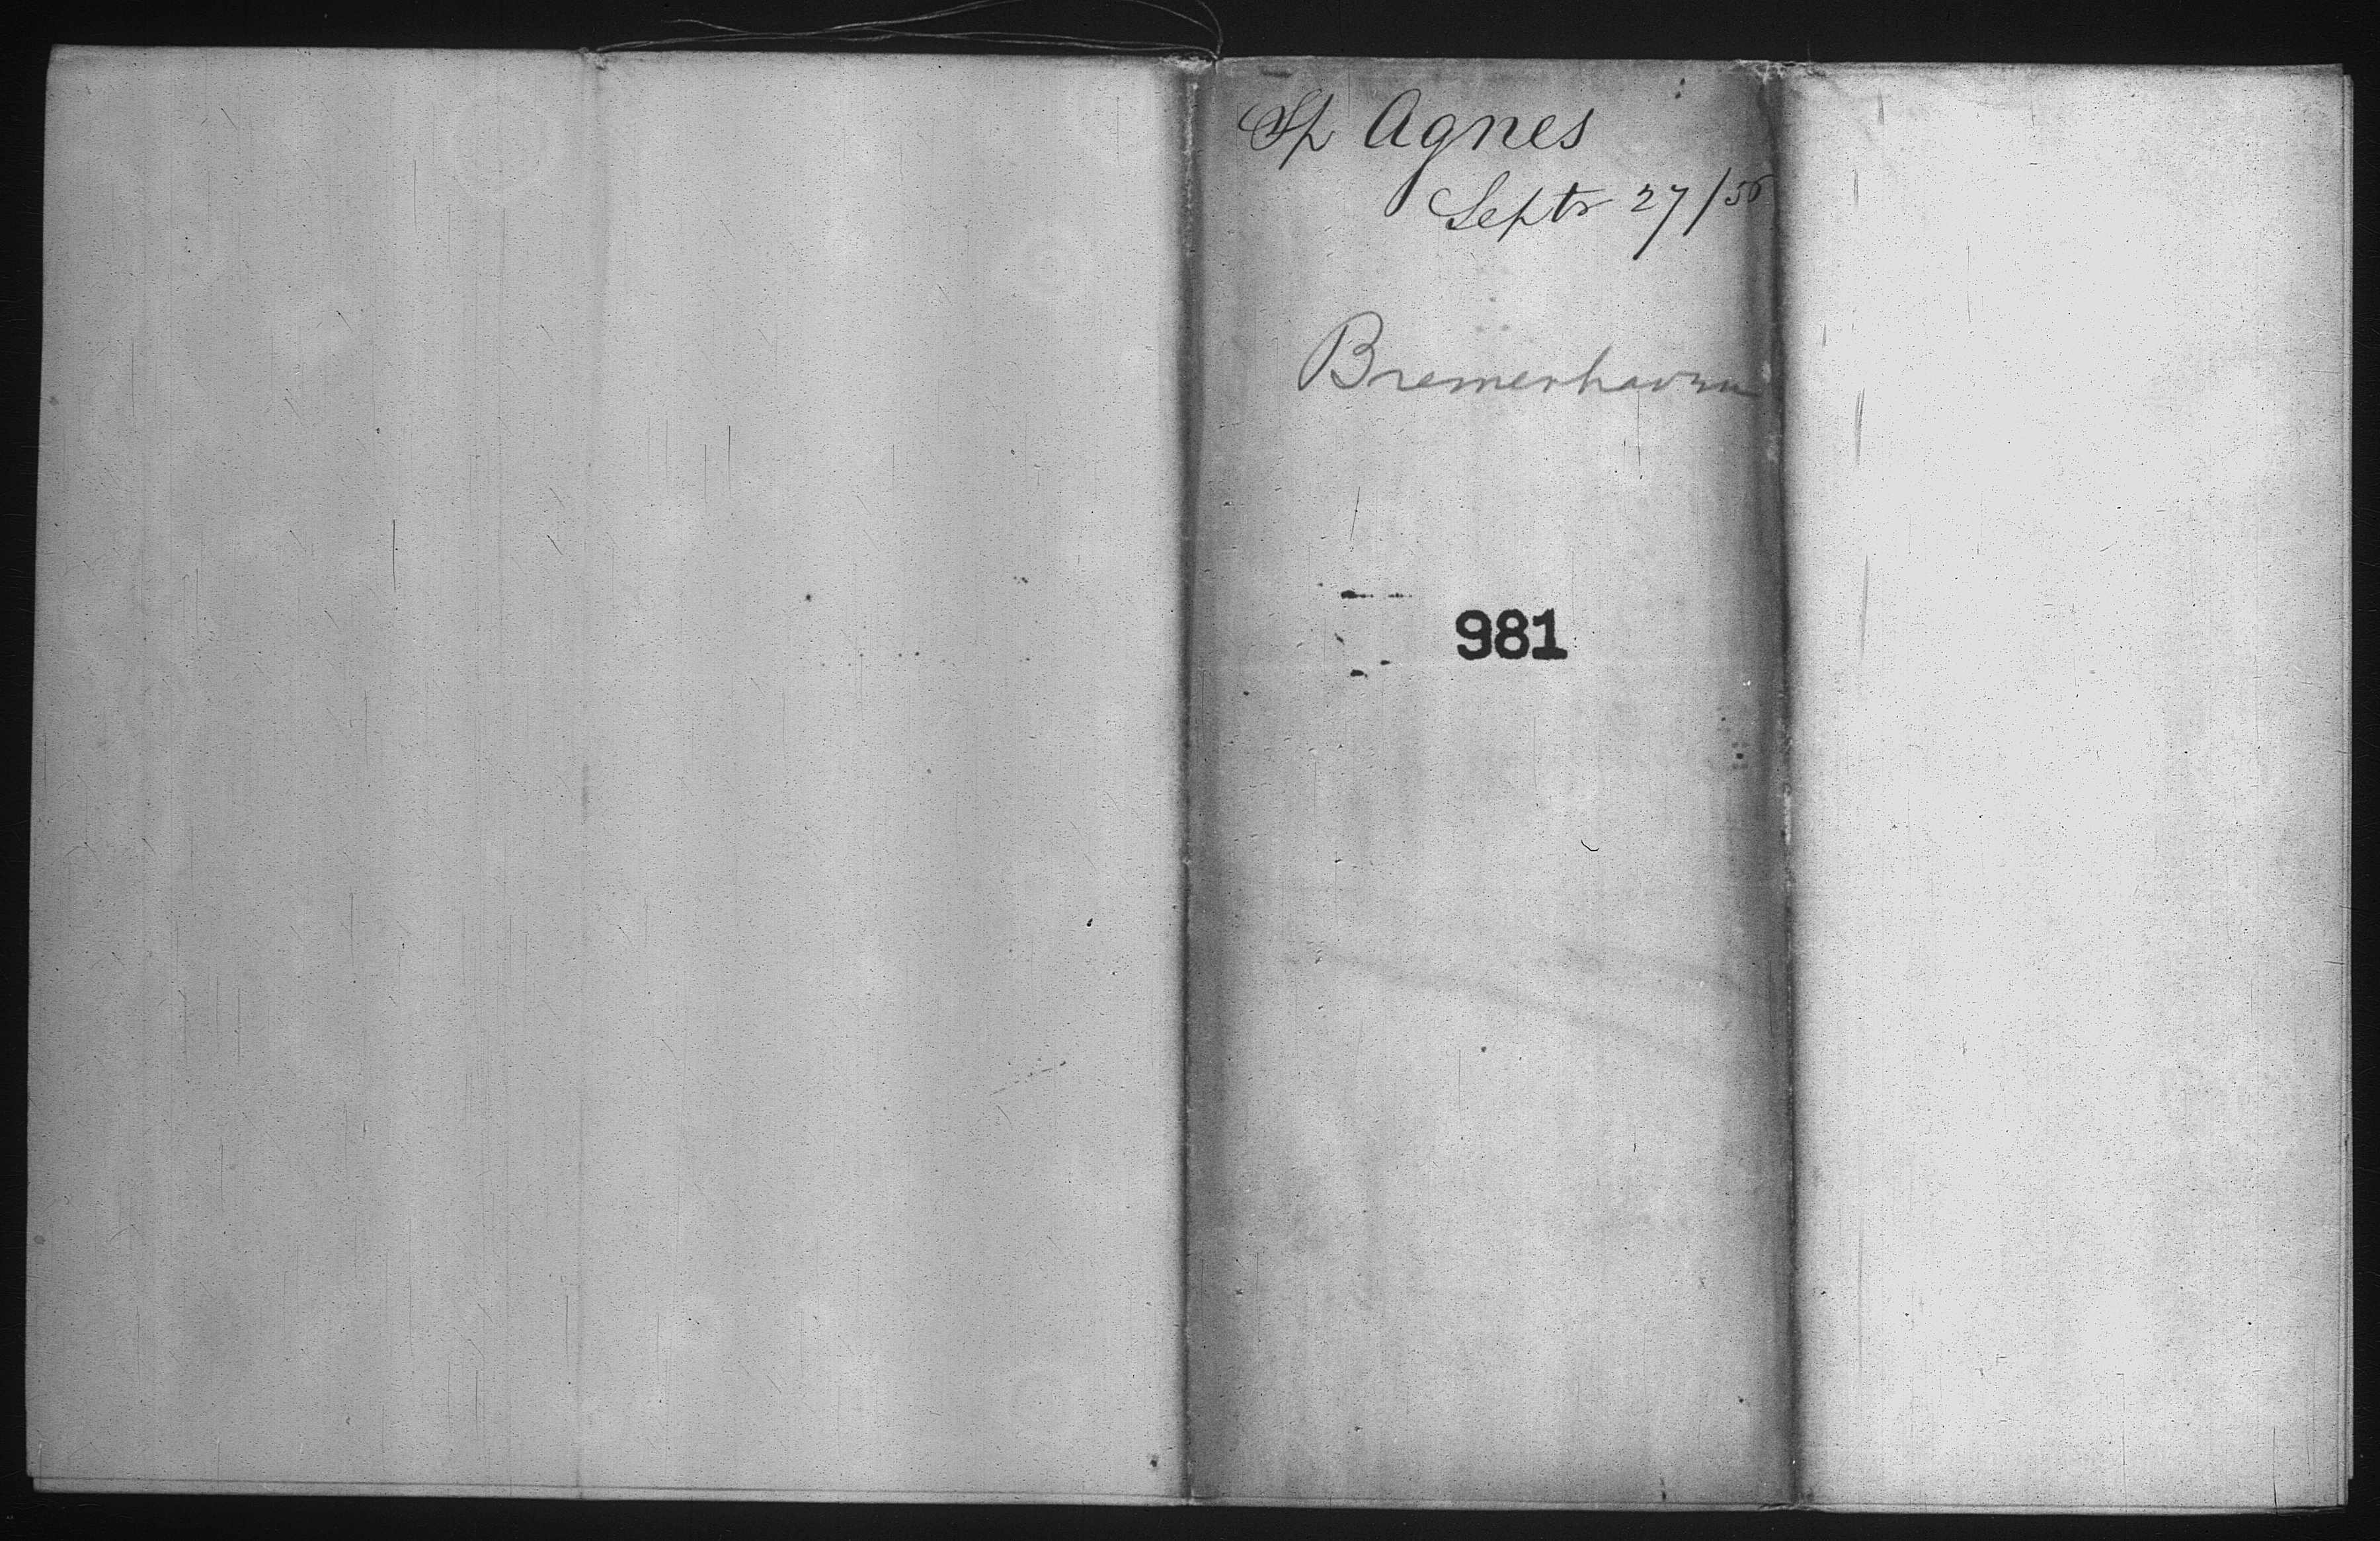 Sp Agnes
Septr 27/55
Bremerhaven
981